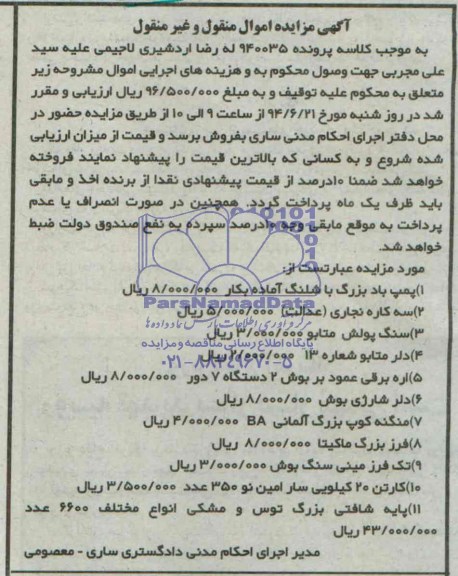 آگهی مزایده اموال منقول و غیر منقول
به موجب کلاسه پرونده ۹۴۰۰۳۵ له رضا اردشیری لاجیمی علیه سید
علی مجربی جهت وصول محکوم به و هزینه های اجرایی اموال مشروحه زیر
متعلق به محکوم علیه توقیف و به مبلغ ۹۶/۵۰۰/۰۰۰ ریال ارزیابی و مقرر
شد در روز شنبه مورخ ۹۴/۶/۲۱ از ساعت ۹ الی ۱۰ از طریق مزایده حضور در
محل دفتر اجرای احکام مدنی ساری بفروش برسد و قیمت از میزان ارزیابی
شده شروع و به کسانی که بالاترین قیمت را پیشنهاد نمایند فروخته
خواهد شد ضمنا ۱۰درصد از قیمت پیشنهادی نقدا از برنده اخذ و مابقی
باید ظرف یک ماه پرداخت گردد. همچنین در صورت انصراف یا عدم
پرداخت به موقع مابقی وجه ۱۰درصد سپرده به نفع صندوق دولت ضبط
خواهد شد.
مورد مزایده عبارتست از:
۱)پمپ باد بزرگ با شلنگ آماده بکار ۸/۰۰۰/۰۰۰ ریال
ParsNamadData
۲)سه کاره نجاری (عدالت) ۵/۰۰۰/۰۰۰ ریال
مرکز آوری اطلاعات پارس نماد داده ها
۳)سنگ پولش متابو ۳/۰۰۰/۰۰۰ ریال
پایگاه اطلاع رسانی مناقصه و مزایده
۴)دلر متابو شماره ۱۳ ۲/۰۰۰/۰۰۰ ریال
۰۲۱-۸۸۳۴۹۶۷۰-۵
۵)اره برقی عمود بر بوش ۲ دستگاه ۷ دور ۸/۰۰۰/۰۰۰ ریال
۶)دلر شارژی بوش ۸/۰۰۰/۰۰۰ ریال
۷)منگنه کوپ بزرگ آلمانی BA ۴/۰۰۰/۰۰۰ ریال
۸)فرز بزرگ ماکیتا ۸/۰۰۰/۰۰۰ ریال
۹)تک فرز مینی سنگ بوش ۳/۰۰۰/۰۰۰ ریال
۱۰)کارتن ۲۰ کیلویی سار امین نو ۳۵۰ عدد ۳/۵۰۰/۰۰۰ ریال
۱۱)پایه شافتی بزرگ توس و مشکی انواع مختلف ۶۶۰۰ عدد
۴۳/۰۰۰/۰۰۰ ریال
مدیر اجرای احکام مدنی دادگستری ساری - معصومی